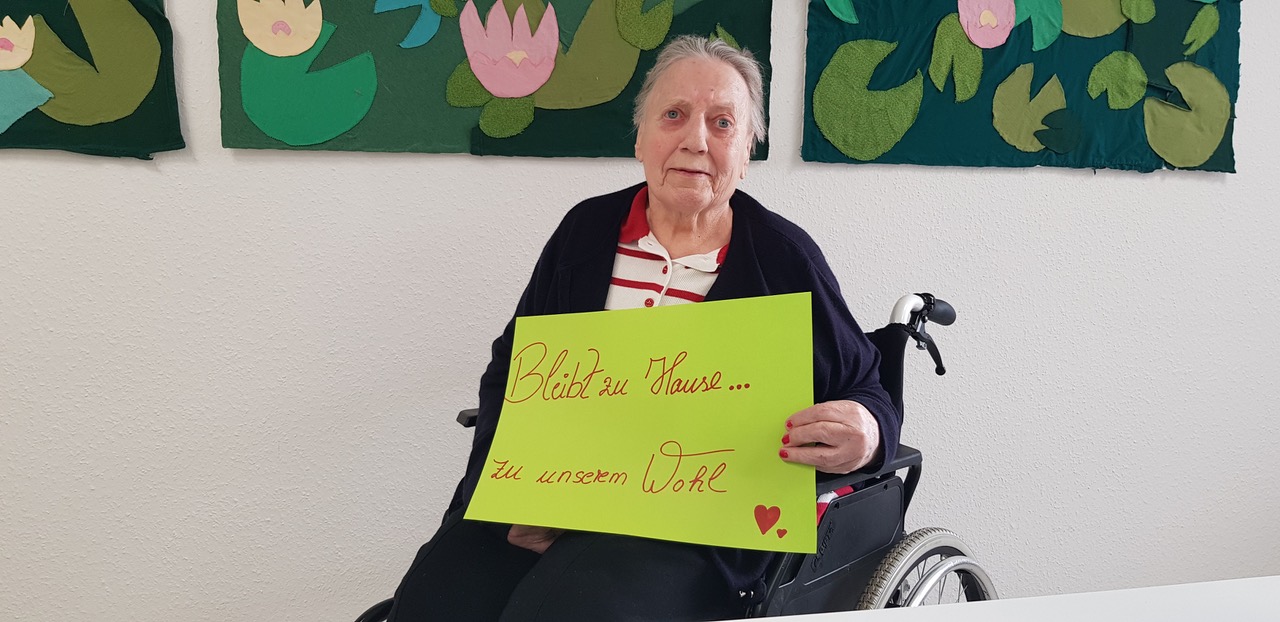 Bleibt zu Hause...
zu unserem Wohl